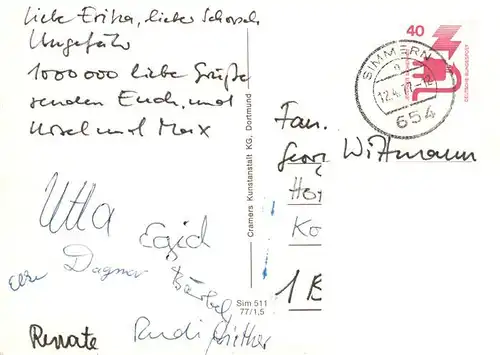 Liebe Erika, lieber Schorsch
Ungefähr
1000000 liebe Grüße
senden Euch, und
Ursel und Max
Utta
Egid
Else Dagmar Bärbel
Renate Rudi Günther
Cramers Kunstanstalt KG, Dortmund
Sim 511
77/1,5
40
DEUTSCHE BUNDESPOST
SIMMERN
12.4.77-12
654
Fam.
Georg Wittmann
Ko
1 B